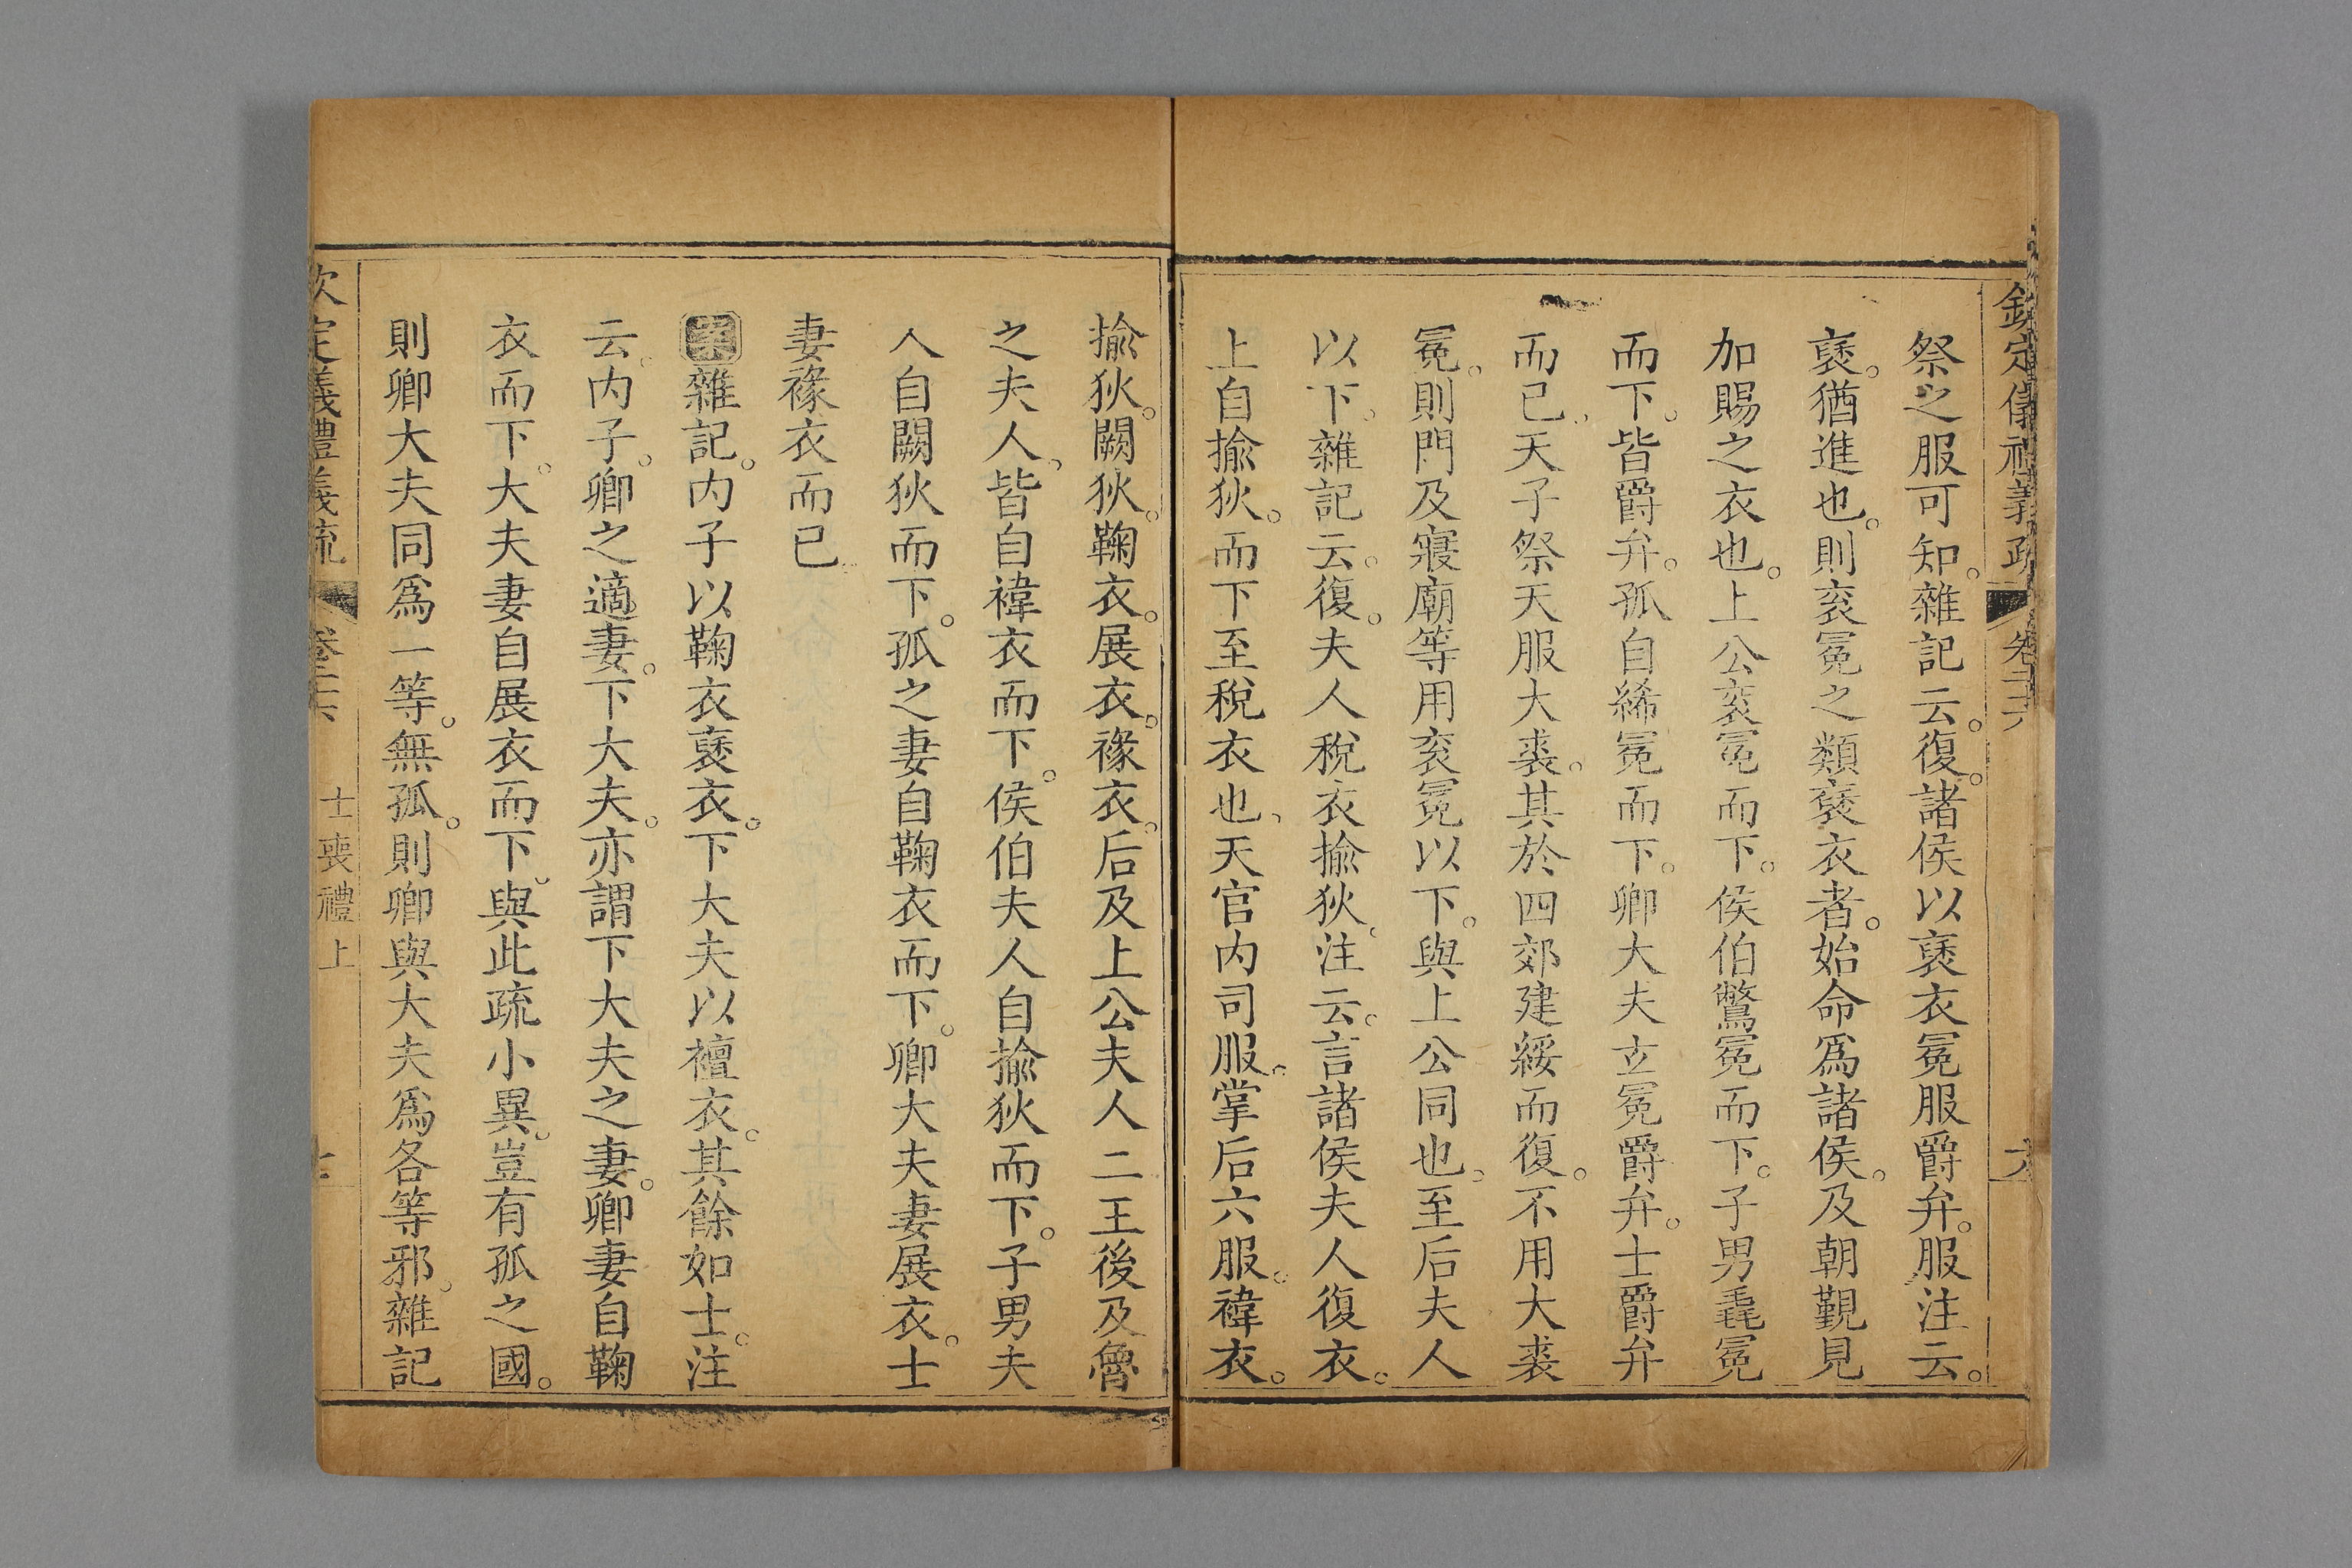 欽定儀禮義疏 卷二十六 六
祭之服可知。雜記云。復。諸侯以襃衣冕服爵弁。服注云。
襃。猶進也。則衮冕之類襃衣者。始命爲諸侯。及朝覲見
加賜之衣也。上公衮冕而下。侯伯鷩冕而下。子男毳冕
而下。皆爵弁。孤自絺冕而下。卿大夫玄冕爵弁。士爵弁
而已。天子祭天服大裘。其於四郊建綏而復。不用大裘
冕。則門及寢廟等用衮冕以下。與上公同也。至后夫人
以下。雜記云。復。夫人稅衣揄狄。注云。言諸侯夫人復衣。
上自揄狄。而下至稅衣也。天官内司服。掌后六服。褘衣。
揄狄。闕狄。鞠衣。展衣。褖衣。后及上公夫人二王後及魯
之夫人。皆自褘衣而下。侯伯夫人自揄狄而下。子男夫
人自闕狄而下。孤之妻自鞠衣而下。卿大夫妻展衣。士
妻褖衣而已。
案雜記。内子以鞠衣襃衣。下大夫以襢衣。其餘如士。注
云。内子。卿之適妻。下大夫。亦謂下大夫之妻。卿妻自鞠
衣而下。大夫妻自展衣而下。與此疏小異。豈有孤之國。
則卿大夫同爲一等。無孤。則卿與大夫爲各等邪。雜記
欽定儀禮義疏 卷二十六 士喪禮上